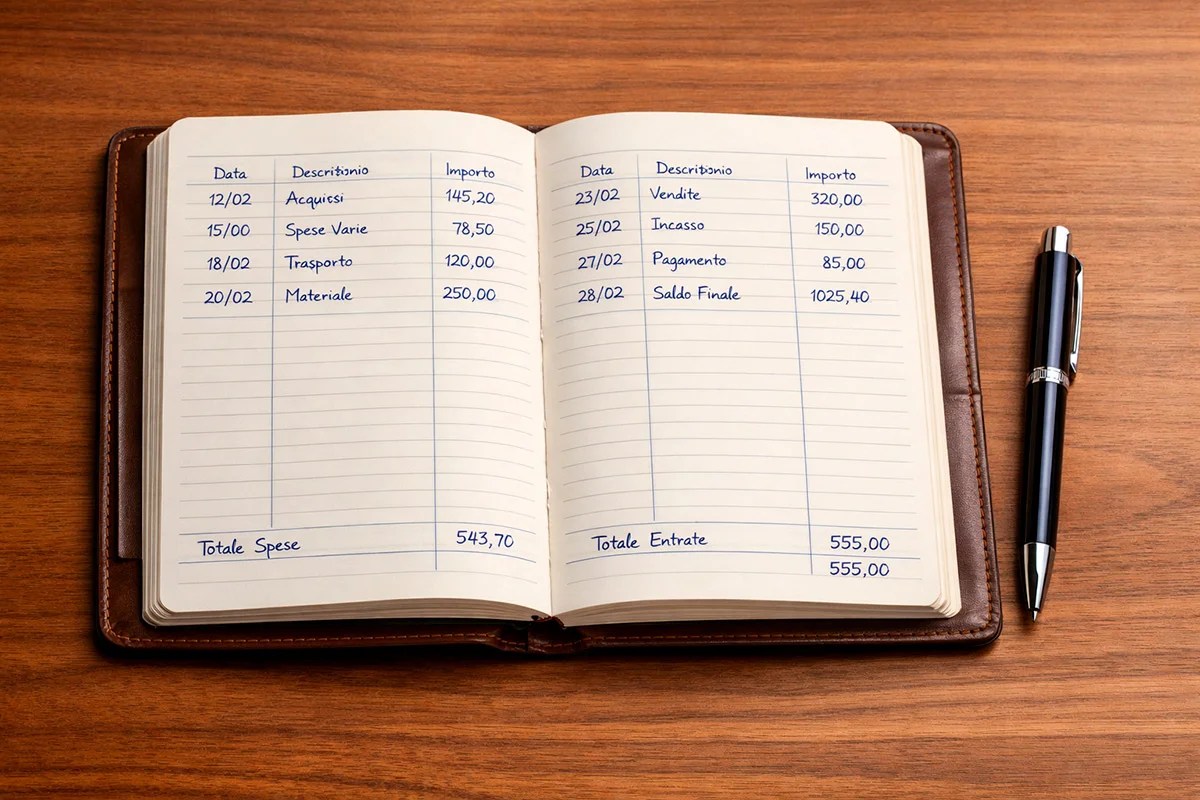 Data Descritionio Importo
12/02 Acquissi 145,20
15/00 Spese Varie 78,50
18/02 Trasporto 120,00
20/02 Materiale 250,00
Totale Spese 543,70
Data Descritionio Importo
23/02 Vendite 320,00
25/02 Incasso 150,00
27/02 Pagamento 85,00
28/02 Saldo Finale 1025,40
Totale Entrate 555,00
555,00